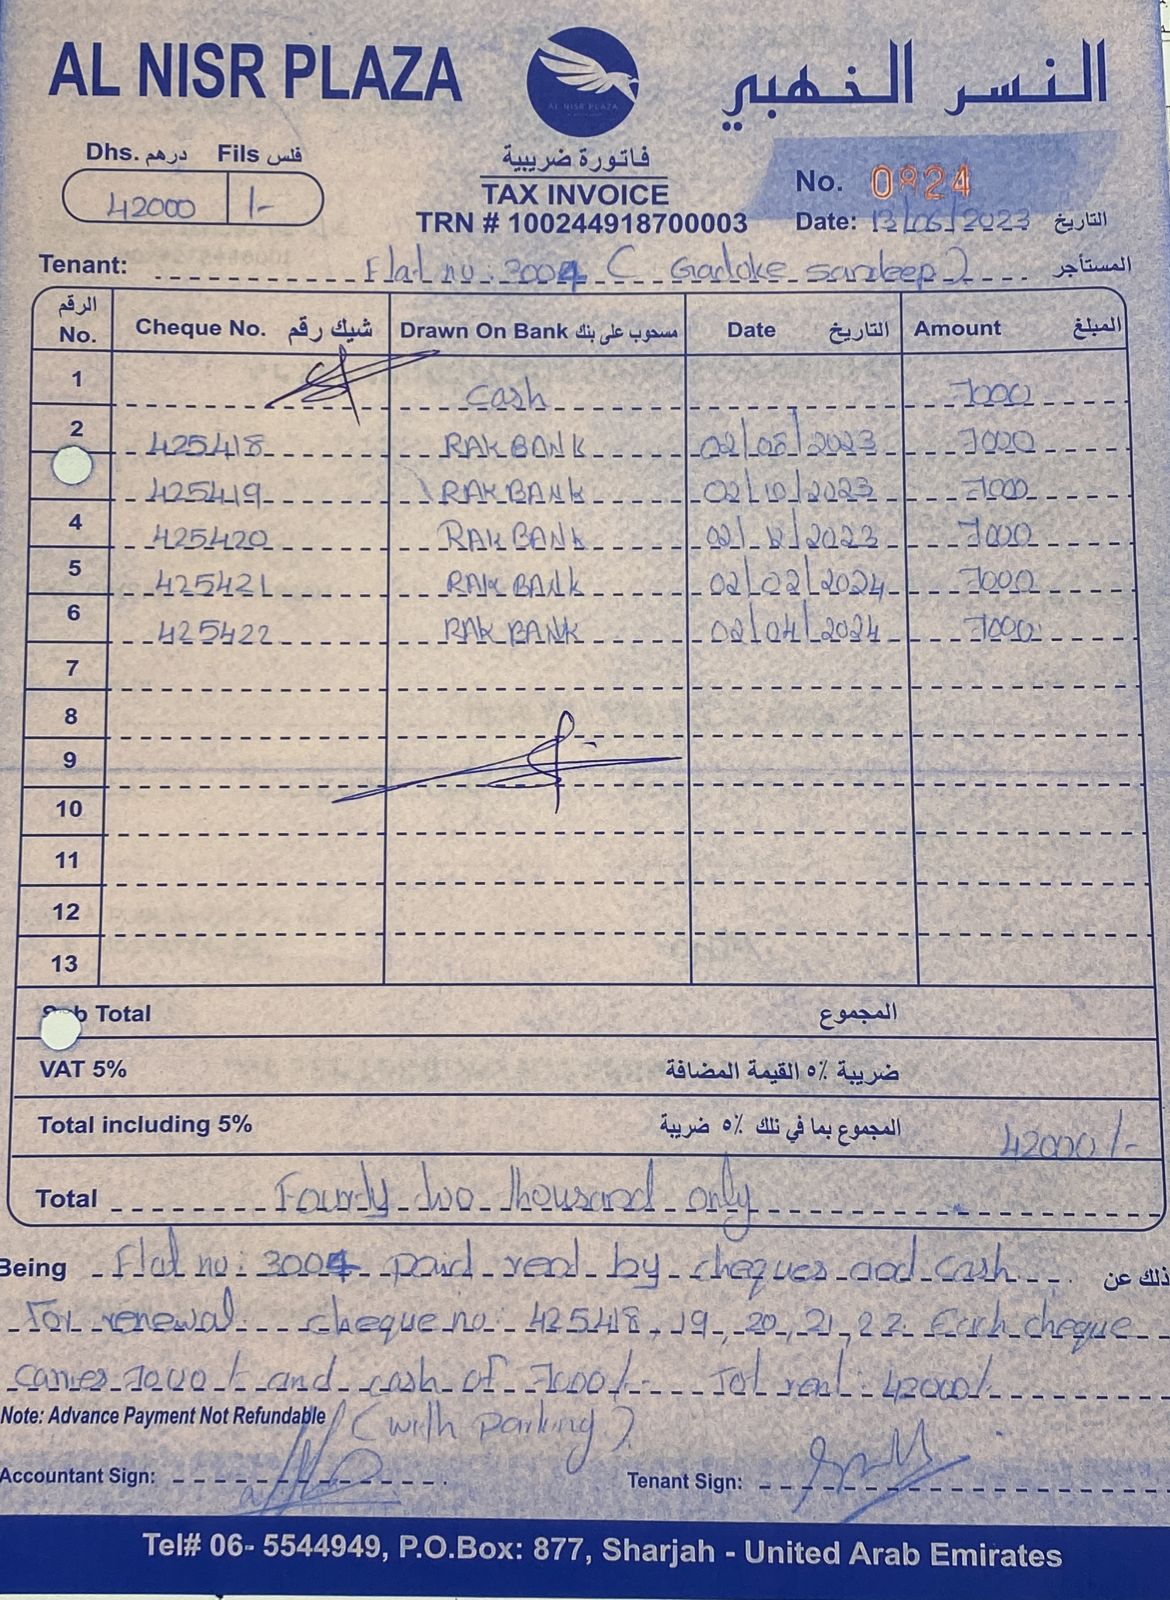 AL NISR PLAZA
AL NISR PLAZA
النسر الخهبي
Dhs. درهم Fils فلس
42000 /-
فاتورة ضريبية
TAX INVOICE
TRN # 100244918700003
No. 0824
Date: 13/06/2023 التاريخ
Tenant: Flat no: 3004 ( Gadoke sandeep) المستأجر
الرقم No. Cheque No. شيك رقم Drawn On Bank مسحوب على بنك Date التاريخ Amount المبلغ
1 cash 7000
2 425418 RAK BANK 02/08/2023 7000
425419 RAK BANK 02/10/2023 7000
4 425420 RAK BANK 02/12/2023 7000
5 425421 RAK BANK 02/02/2024 7000
6 425422 RAK BANK 02/04/2024 7000
7
8
9
10
11
12
13
Sub Total المجموع
VAT 5% ضريبة ٥٪ القيمة المضافة
Total including 5% المجموع بما في نلك ٥٪ ضريبة 42000/-
Total Fourty two thousand only
Being Flat no: 3004 paid rent by cheques and cash ذلك عن
For renewal cheque no: 425418, 19, 20, 21, 22 Each cheque
carries 7000/- and cash of 7000/- Tot rent: 42000/-
Note: Advance Payment Not Refundable (with parking)
Accountant Sign: Tenant Sign:
Tel# 06- 5544949, P.O.Box: 877, Sharjah - United Arab Emirates